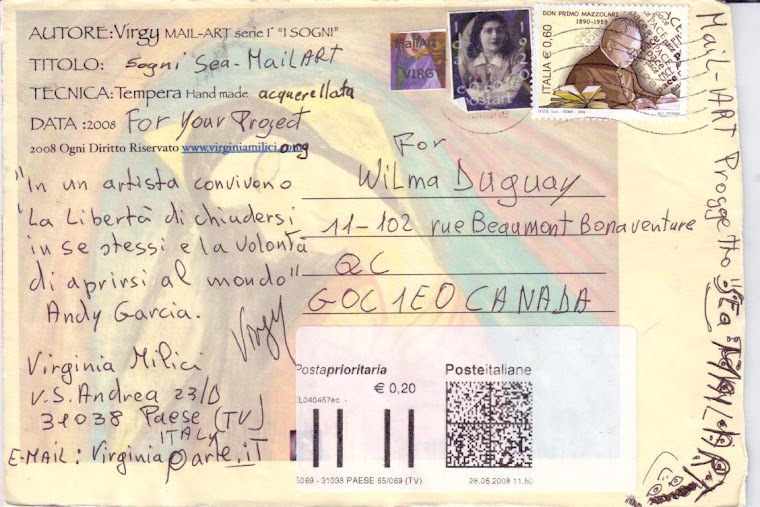 AUTORE: Virgy MAIL-ART serie 1° "I SOGNI"
TITOLO: Sogni Sea-MailART
TECNICA: Tempera Hand made acquerellata
DATA : 2008 For Your Project
2008 Ogni Diritto Riservato www.virginiamilici.org
"In un artista convivono
"La Libertà di chiudersi
in se stessi e la volontà
di aprirsi al mondo"
Andy Garcia.
Virgy
Virginia Milici
V.S. Andrea 23/D
31038 Paese (TV)
ITALY
E-MAIL: Virginia@arte.iT
MailArt
VIRG
DON PRIMO MAZZOLARI
1890-1959
ITALIA € 0,60
For
Wilma Duguay
11-102 rue Beaumont Bonaventure
QC
GOC1EO CANADA
Postaprioritaria
Posteitaliane
€ 0,20
EL040457ec -
5069 - 31038 PAESE 65/069 (TV)
28.05.2009 11.50
MAIL-ART Progetto "SEA MAIL ART